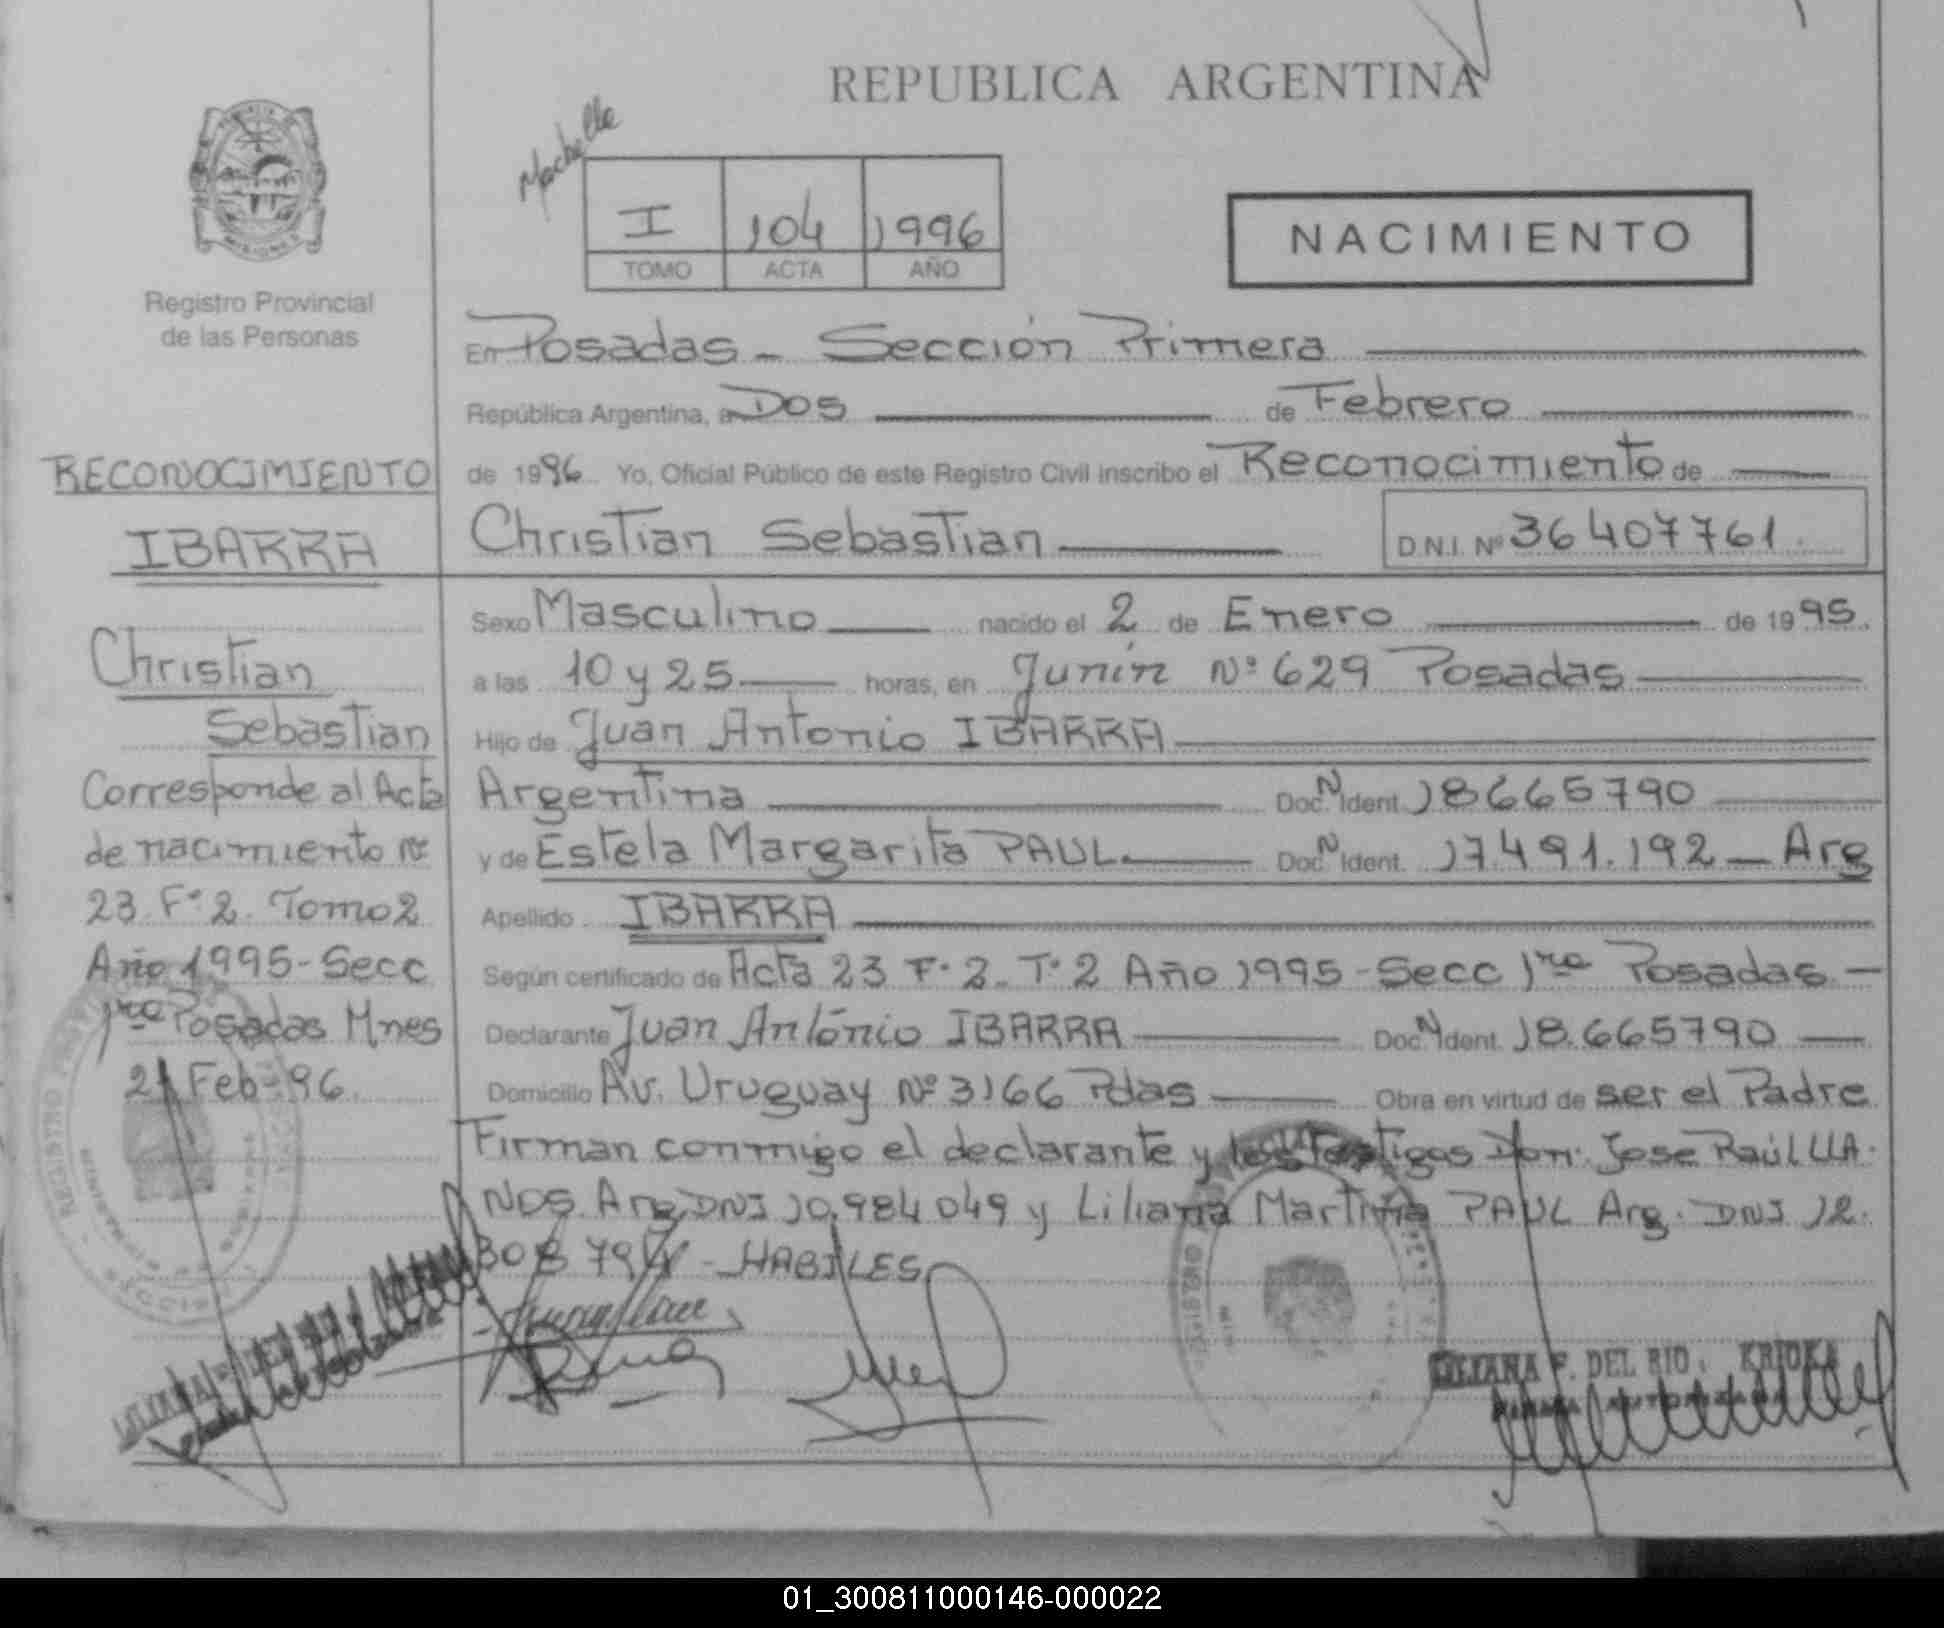 REPUBLICA ARGENTINA
I 104 1996
TOMO ACTA AÑO
NACIMIENTO
Registro Provincial
de las Personas
RECONOCIMIENTO
IBARRA
Christian
Sebastian
Corresponde al Acta
de nacimiento Nº
23 Fº 2. Tomo 2
Año 1995 - Secc
1ra Posadas Mnes
21 Feb - 96.
En Posadas - Sección Primera
República Argentina, a Dos de Febrero
de 1996 Yo, Oficial Público de este Registro Civil inscribo el Reconocimiento de
Christian Sebastian D.N.I. Nº 36407761
Sexo Masculino nacido el 2 de Enero de 1995.
a las 10 y 25 horas, en Junín Nº 629 Posadas
Hijo de Juan Antonio IBARRA
Argentina Doc. N Ident. 18665790
y de Estela Margarita PAUL Doc. N Ident. 17.491.192 - Arg
Apellido IBARRA
Según certificado de Acta 23 Fº 2. Tº 2 Año 1995 - Secc 1ra Posadas -
Declarante Juan Antonio IBARRA Doc. N Ident. 18.665790
Domicilio Av. Uruguay Nº 3166 Pdas Obra en virtud de ser el Padre
Firman conmigo el declarante y los testigos Don: Jose Raúl LLA-
NOS. Arg DNI 10.984049 y Liliana Martina PAUL Arg. DNI 12.
308 794 - HABILES
LILIANA F. DEL RIO
01_300811000146-000022